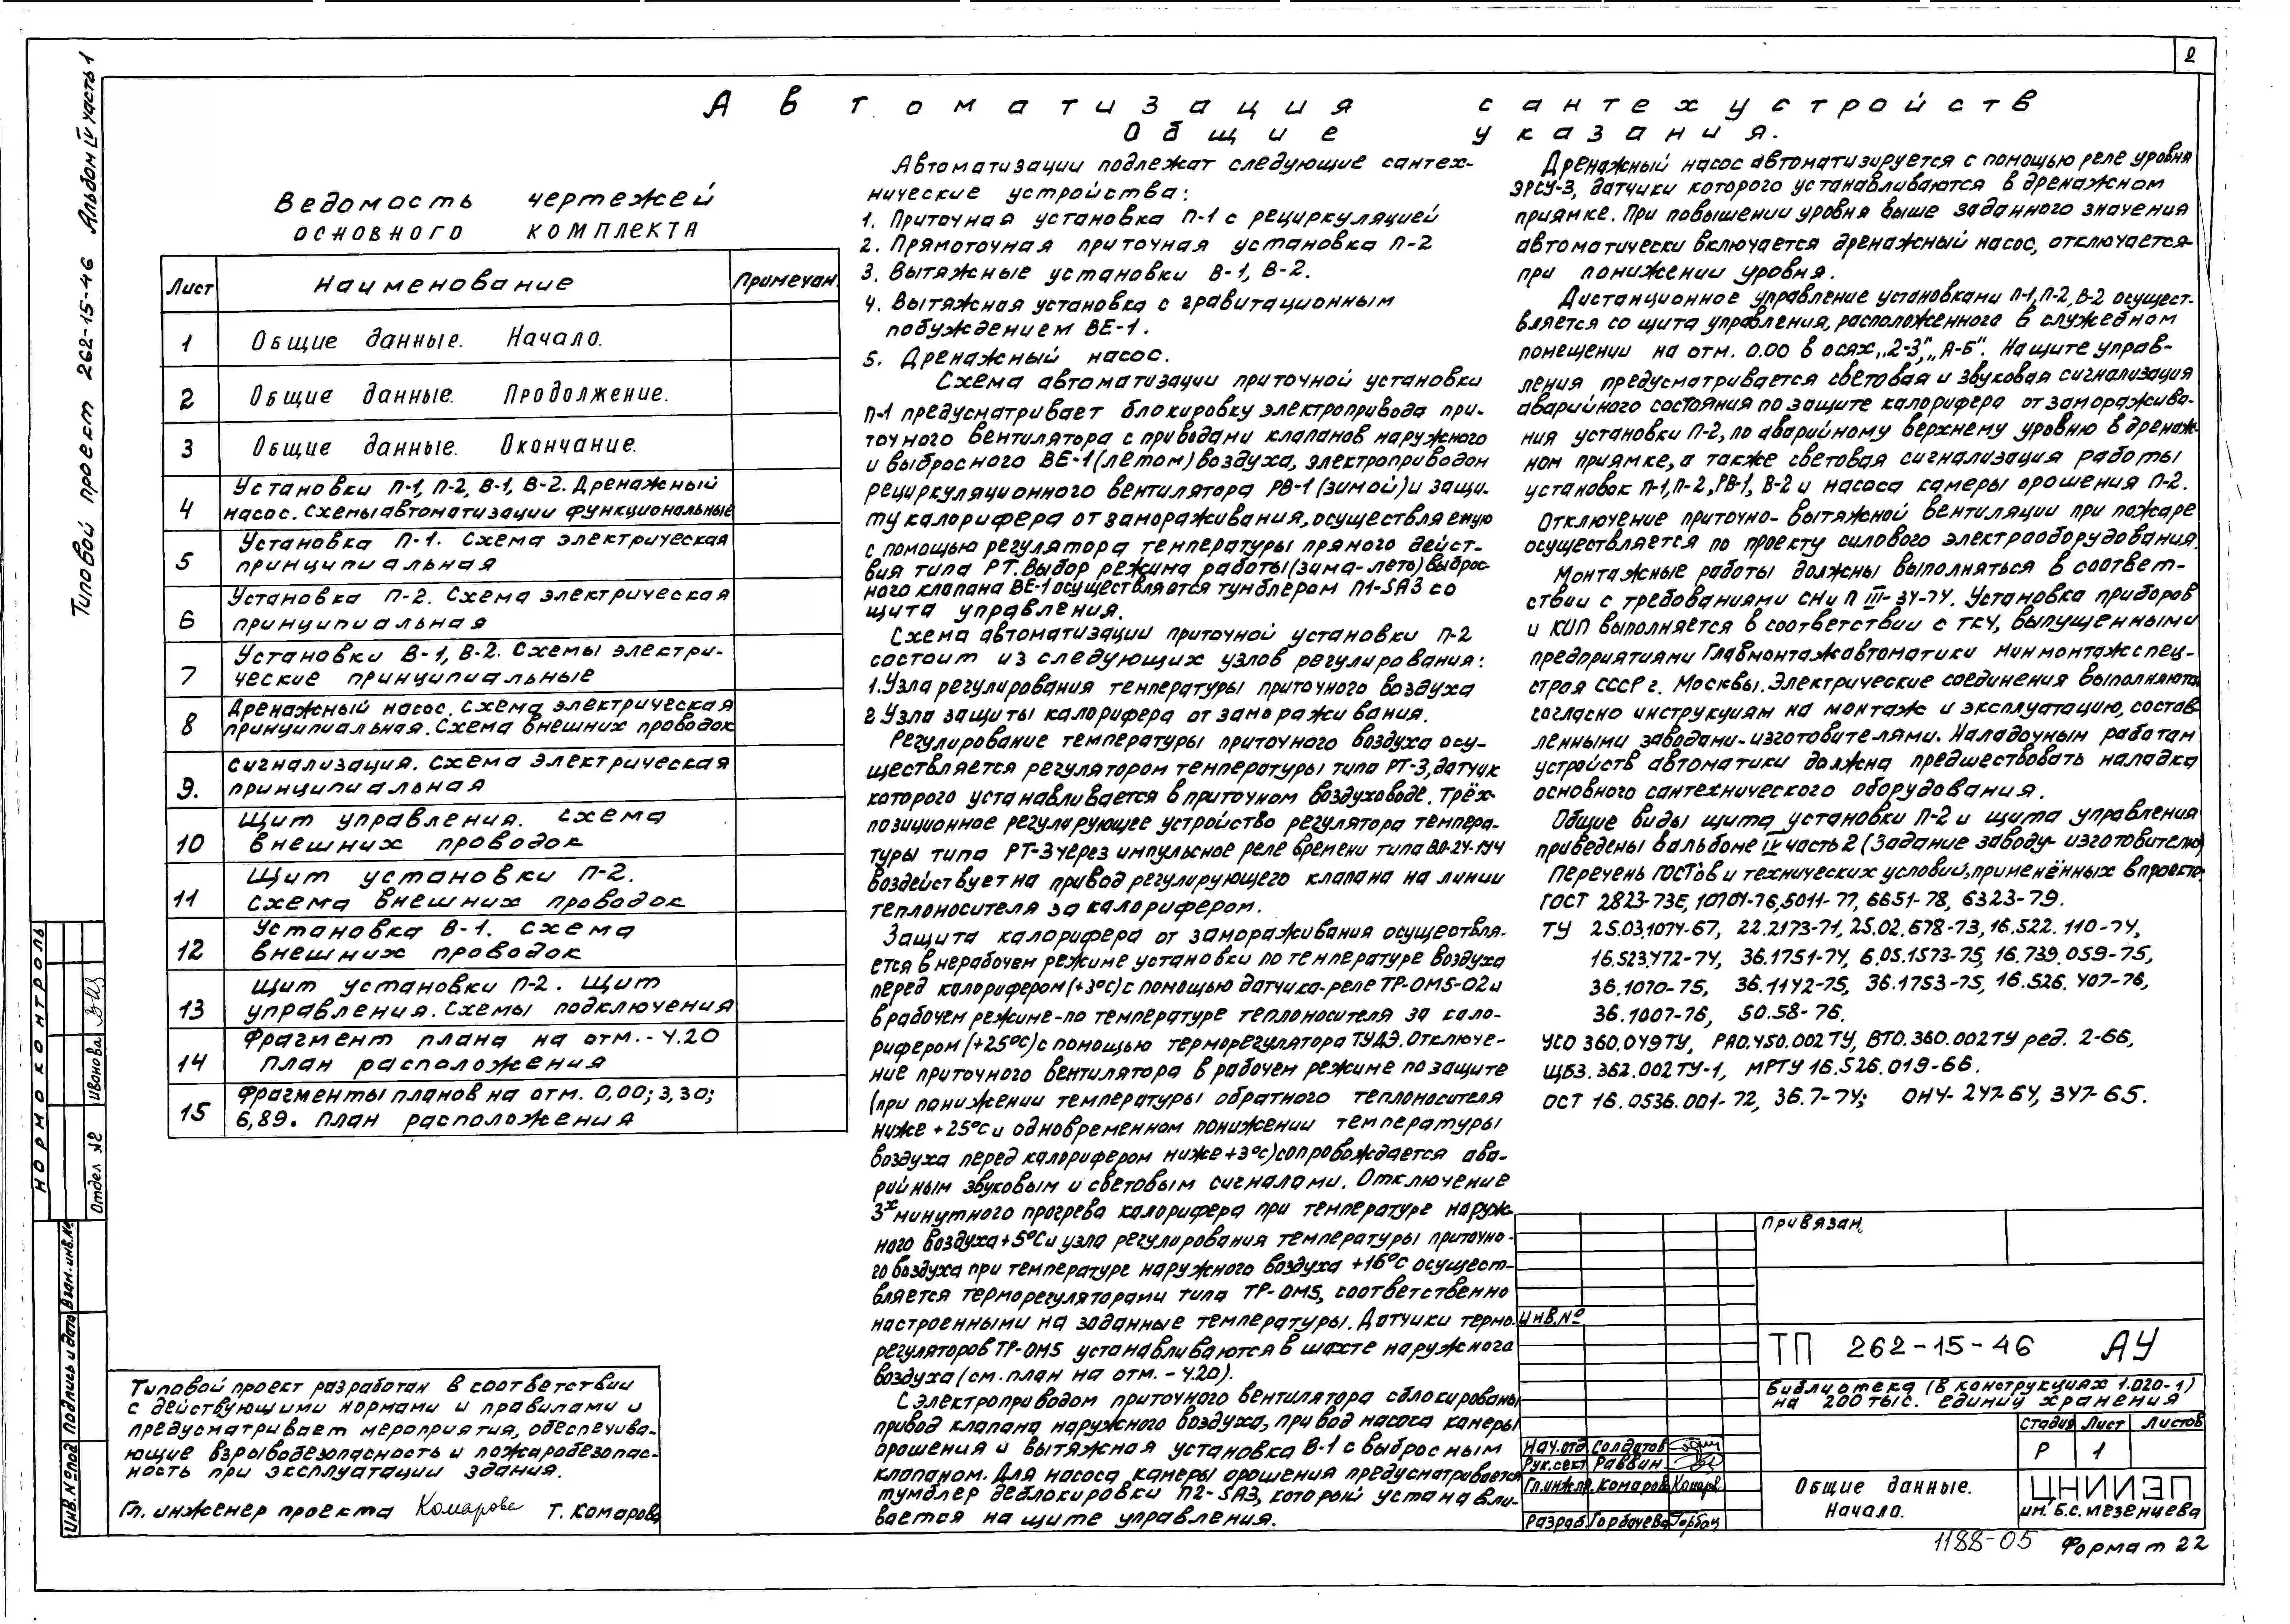 2
Типовой проект 262-15-46 Альбом IV часть 1
Автоматизация сантехустройств
Общие указания.
Ведомость чертежей
основного комплекта
Лист Наименование Примечан.
1 Общие данные. Начало.
2 Общие данные. Продолжение.
3 Общие данные. Окончание.
4 Установки П-1, П-2, В-1, В-2. Дренажный
насос. Схемы автоматизации функциональные
5 Установка П-1. Схема электрическая
принципиальная
6 Установка П-2. Схема электрическая
принципиальная
7 Установки В-1, В-2. Схемы электри-
ческие принципиальные
8 Дренажный насос. Схема электрическая
принципиальная. Схема внешних проводок
9. Сигнализация. Схема электрическая
принципиальная
10 Щит управления. Схема
внешних проводок
11 Щит установки П-2.
Схема внешних проводок
12 Установка В-1. Схема
внешних проводок
13 Щит установки П-2. Щит
управления. Схемы подключения
14 Фрагмент плана на отм. -4.20
План расположения
15 Фрагменты планов на отм. 0,00; 3,30;
6,89. План расположения
Автоматизации подлежат следующие сантех-
нические устройства:
1. Приточная установка П-1 с рециркуляцией
2. Прямоточная приточная установка П-2
3. Вытяжные установки В-1, В-2.
4. Вытяжная установка с гравитационным
побуждением ВЕ-1.
5. Дренажный насос.
Схема автоматизации приточной установки
П-1 предусматривает блокировку электропривода при-
точного вентилятора с приводами клапанов наружного
и выбросного ВЕ-1 (летом) воздуха, электроприводом
рециркуляционного вентилятора РВ-1 (зимой) и защи-
ту калорифера от замораживания, осуществляемую
с помощью регулятора температуры прямого дейст-
вия типа РТ. Выбор режима работы (зима-лето) выброс-
ного клапана ВЕ-1 осуществляется тумблером П1-SА3 со
щита управления.
Схема автоматизации приточной установки П-2
состоит из следующих узлов регулирования:
1. Узла регулирования температуры приточного воздуха
2. Узла защиты калорифера от замораживания.
Регулирование температуры приточного воздуха осу-
ществляется регулятором температуры типа РТ-3, датчик
которого устанавливается в приточном воздуховоде. Трёх-
позиционное регулирующее устройство регулятора темпера-
туры типа РТ-3 через импульсное реле времени типа ВЛ-24-1У4
воздействует на привод регулирующего клапана на линии
теплоносителя за калорифером.
Защита калорифера от замораживания осуществля-
ется в нерабочем режиме установки по температуре воздуха
перед калорифером (+3°С) с помощью датчика-реле ТР-ОМ5-02 и
в рабочем режиме-по температуре теплоносителя за кало-
рифером (+25°С) с помощью терморегулятора ТУДЭ. Отключе-
ние приточного вентилятора в рабочем режиме по защите
(при понижении температуры обратного теплоносителя
ниже +25°С и одновременном понижении температуры
воздуха перед калорифером ниже +3°С) сопровождается ава-
рийным звуковым и световым сигналами. Отключение
3х минутного прогрева калорифера при температуре наруж-
ного воздуха +5°С и узла регулирования температуры приточно-
го воздуха при температуре наружного воздуха +16°С осущест-
вляется терморегуляторами типа ТР-ОМ5, соответственно
настроенными на заданные температуры. Датчики термо-
регуляторов ТР-ОМ5 устанавливаются в шахте наружного
воздуха (см. план на отм. -4.20).
С электроприводом приточного вентилятора сблокированы
привод клапана наружного воздуха, привод насоса камеры
орошения и вытяжная установка В-1 с выбросным
клапаном. Для насоса камеры орошения предусматривается
тумблер деблокировки П2-SА3, который устанавли-
вается на щите управления.
Дренажный насос автоматизируется с помощью реле уровня
ЭРСУ-3, датчики которого устанавливаются в дренажном
приямке. При повышении уровня выше заданного значения
автоматически включается дренажный насос, отключается-
при понижении уровня.
Дистанционное управление установками П-1, П-2, В-2 осущест-
вляется со щита управления, расположенного в служебном
помещении на отм. 0.00 в осях „2-3", „А-Б". На щите управ-
ления предусматривается световая и звуковая сигнализация
аварийного состояния по защите калорифера от заморажива-
ния установки П-2, по аварийному верхнему уровню в дренаж-
ном приямке, а также световая сигнализация работы
установок П-1, П-2, РВ-1, В-2 и насоса камеры орошения П-2.
Отключение приточно-вытяжной вентиляции при пожаре
осуществляется по проекту силового электрооборудования.
Монтажные работы должны выполняться в соответ-
ствии с требованиями СНиП III-34-74. Установка приборов
и КИП выполняется в соответствии с ТКЧ, выпущенными
предприятиями Главмонтажавтоматики Минмонтажспец-
строя СССР г. Москвы. Электрические соединения выполняются
согласно инструкциям на монтаж и эксплуатацию, состав-
ленными заводами-изготовителями. Наладочным работам
устройств автоматики должна предшествовать наладка
основного сантехнического оборудования.
Общие виды щита установки П-2 и щита управления
приведены в альбоме IV часть 2 (Задание заводу-изготовителю)
Перечень ГОСТов и технических условий, применённых в проекте:
ГОСТ 2823-73Е, 10701-76, 5011-77, 6651-78, 6323-79.
ТУ 25.03.1074-67, 22.2173-71, 25.02.678-73, 16.522.110-74,
16.523.472-74, 36.1751-74, 6.05.1573-75, 16.739.059-75,
36.1070-75, 36.1142-75, 36.1753-75, 16.526.407-76,
36.1007-76, 50.58-76.
УСО 360.049ТУ, РА0.450.002ТУ, ВТО.360.002ТУ ред. 2-66,
ЩБ3.362.002ТУ-1, МРТУ 16.526.019-66.
ОСТ 16.0536.001-72, 36.7-74; ОН4-247-64, 347-65.
Типовой проект разработан в соответствии
с действующими нормами и правилами и
предусматривает мероприятия, обеспечива-
ющие взрывобезопасность и пожаробезопас-
ность при эксплуатации здания.
Гл. инженер проекта Комарова Т. Комарова
Нормоконтроль
Отдел №2 Иванова
Инв.№под Подпись и дата Взам.инв.№
Привязан
Инв.№
ТП 262-15-46 АУ
Библиотека (в конструкциях 1.020-1)
на 200 тыс. единиц хранения
Стадия Лист Листов
Р 1
Нач.отд Солдатов
Рук.сект Раввин
Гл.инж.пр. Комарова Комаров
Разраб. Горбачева Горбач
Общие данные.
Начало.
ЦНИИЭП
им. Б.С. Мезенцева
1188-05 Формат 22